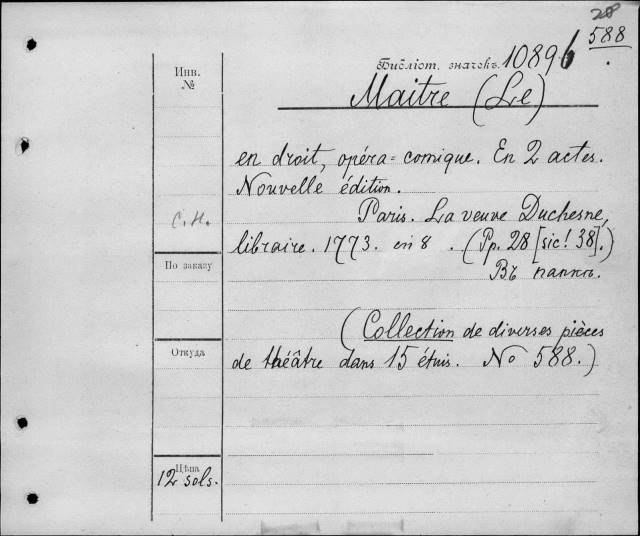 28
588
Библіот. значокъ. 10896
Инв.
№
Maitre (Le)
en droit, opéra=comique. En 2 actes.
Nouvelle édition.
Paris. La veuve Duchesne,
С.Н.
libraire. 1773. in 8. (Pp. 28 [sic! 38].)
Въ папкѣ.
По заказу
(Collection de diverses pièces
Откуда
de théâtre dans 15 étuis. No 588.)
Цѣна
12 sols.